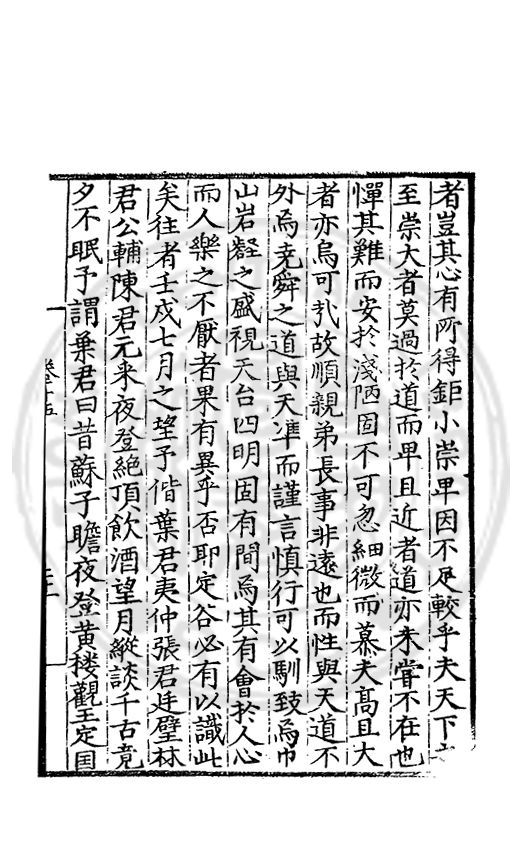 者豈其心有所得鉅小崇卑因不足較乎夫天下之
至崇大者莫過於道而卑且近者道亦未嘗不在也
憚其難而安於淺陋固不可忽細微而慕夫高且大
者亦烏可㢤故順親弟長事非遠也而性與天道不
外焉堯舜之道與天凖而謹言慎行可以馴致焉巾
山岩壑之盛視天台四明固有間焉其有會於人心
而人樂之不厭者果有異乎否耶定谷必有以識此
矣往者壬戌七月之望予偕葉君夷仲張君廷璧林
君公輔陳君元采夜登絶頂飲酒望月縱談千古竟
夕不眠予謂葉君曰昔蘇子瞻夜登黄楼觀王定国
卷十五